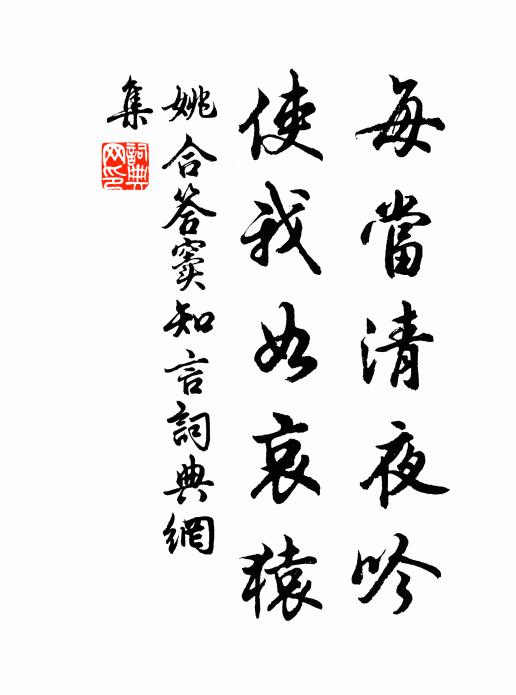 每當清夜吟
使我如哀猿
姚合答竇知言詞典網
集
詞典網印